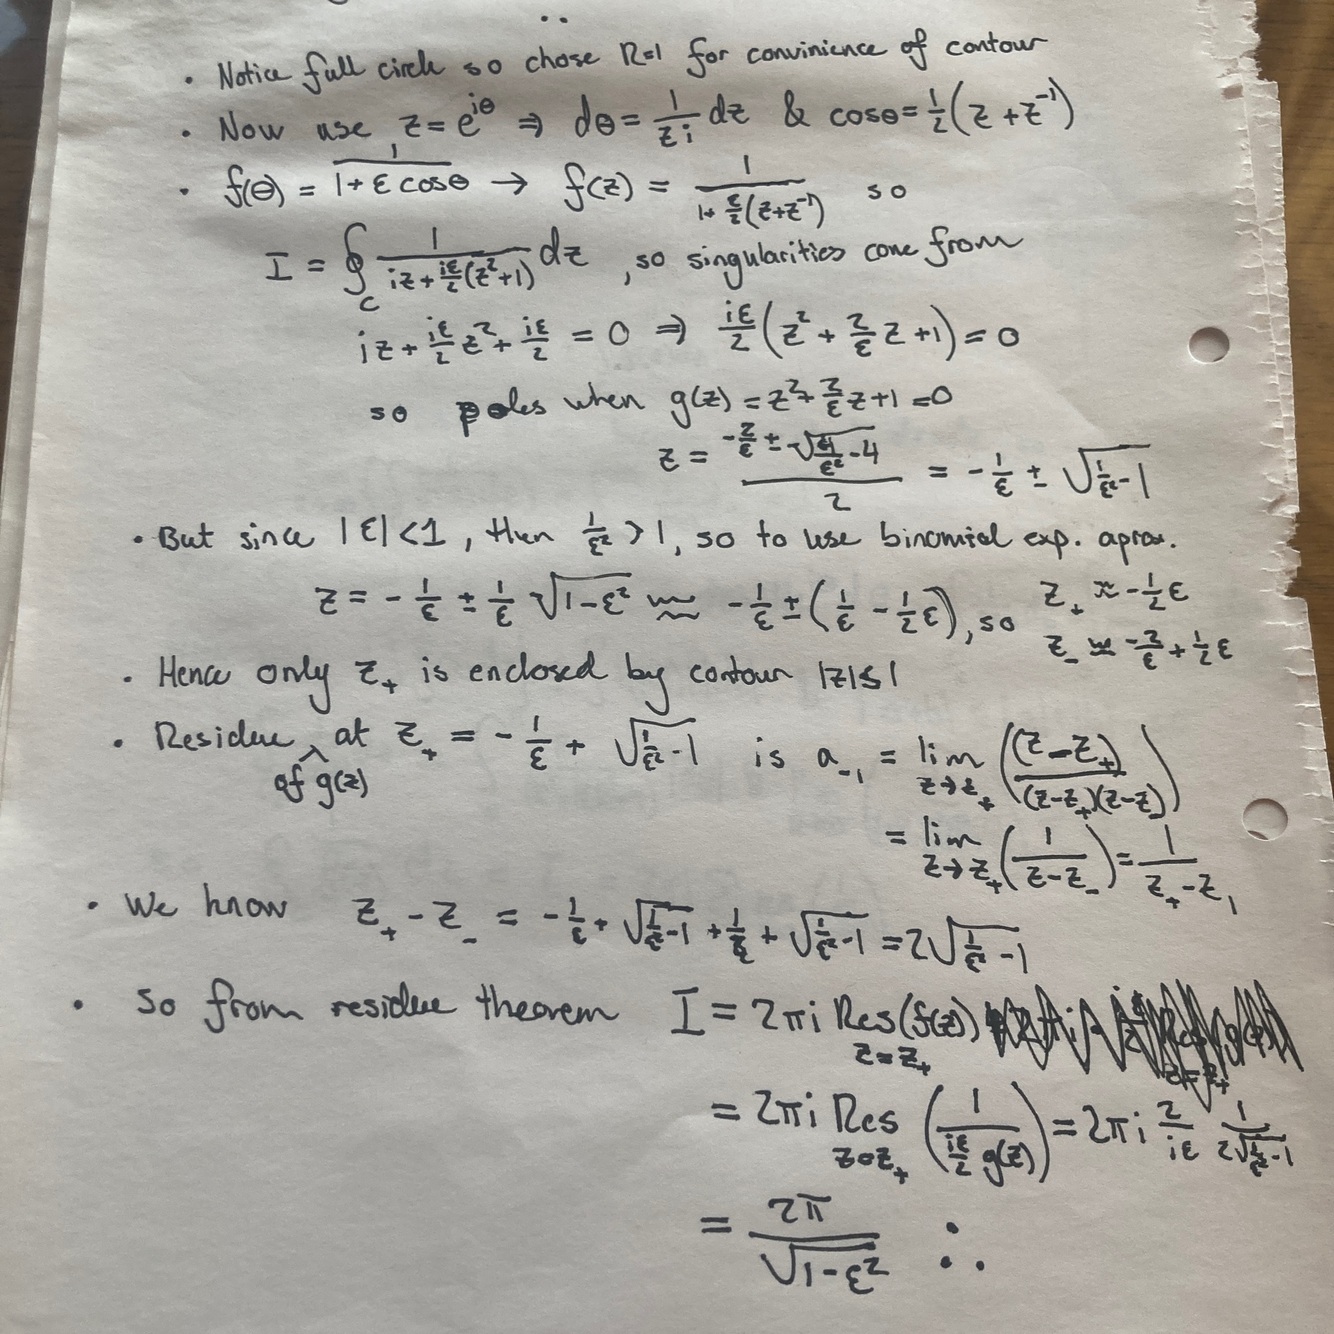 ∴
• Notice full circle so chose R=1 for convinience of contour
• Now use z = e^{iθ} ⇒ dθ = \frac{1}{zi} dz & cosθ = \frac{1}{2}(z + z^{-1})
• f(θ) = \frac{1}{1+ε cosθ} → f(z) = \frac{1}{1+\frac{ε}{2}(z+z^{-1})} so
I = ∮_C \frac{1}{iz+\frac{iε}{2}(z^2+1)} dz , so singularities come from
iz + \frac{iε}{2} z^2 + \frac{iε}{2} = 0 ⇒ \frac{iε}{2}(z^2 + \frac{2}{ε} z + 1) = 0
so poles when g(z) = z^2 + \frac{2}{ε} z + 1 = 0
z = \frac{-\frac{2}{ε} ± \sqrt{\frac{4}{ε^2} - 4}}{2} = -\frac{1}{ε} ± \sqrt{\frac{1}{ε^2} - 1}
• But since |ε| < 1 , then \frac{1}{ε^2} > 1, so to use binomial exp. aprox.
z = -\frac{1}{ε} ± \frac{1}{ε} \sqrt{1-ε^2} ≈ -\frac{1}{ε} ± (\frac{1}{ε} - \frac{1}{2}ε), so z_+ ≈ -\frac{1}{2}ε
z_- ≈ -\frac{2}{ε} + \frac{1}{2}ε
• Hence only z_+ is enclosed by contour |z|≤1
• Residue of g(z) at z_+ = -\frac{1}{ε} + \sqrt{\frac{1}{ε^2} - 1} is a_{-1} = \lim_{z→z_+} (\frac{(z-z_+)}{(z-z_+)(z-z_-)})
= \lim_{z→z_+} (\frac{1}{z-z_-}) = \frac{1}{z_+ - z_1}
• We know z_+ - z_- = -\frac{1}{ε} + \sqrt{\frac{1}{ε^2} - 1} + \frac{1}{ε} + \sqrt{\frac{1}{ε^2} - 1} = 2\sqrt{\frac{1}{ε^2} - 1}
• So from residue theorem I = 2πi Res_{z=z_+}(f(z))
= 2πi Res_{z=z_+} (\frac{1}{\frac{iε}{2} g(z)}) = 2πi \frac{2}{iε} \frac{1}{2\sqrt{\frac{1}{ε^2} - 1}}
= \frac{2π}{\sqrt{1-ε^2}} ∴